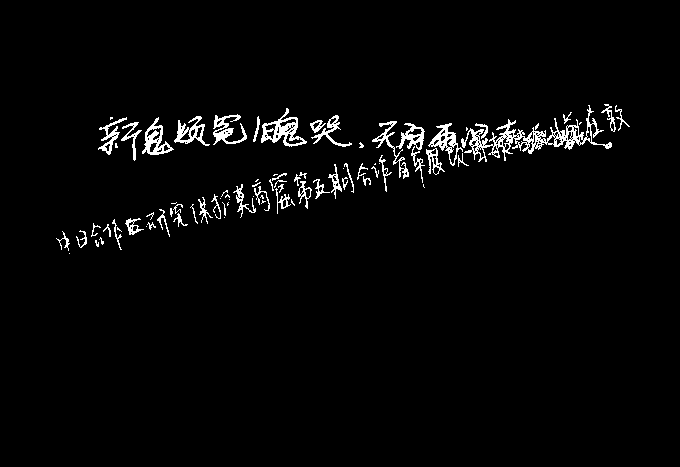 新鬼烦冤旧鬼哭，天阴雨湿声
中日合作 研究保护莫高窟第五期合作首年度 在敦